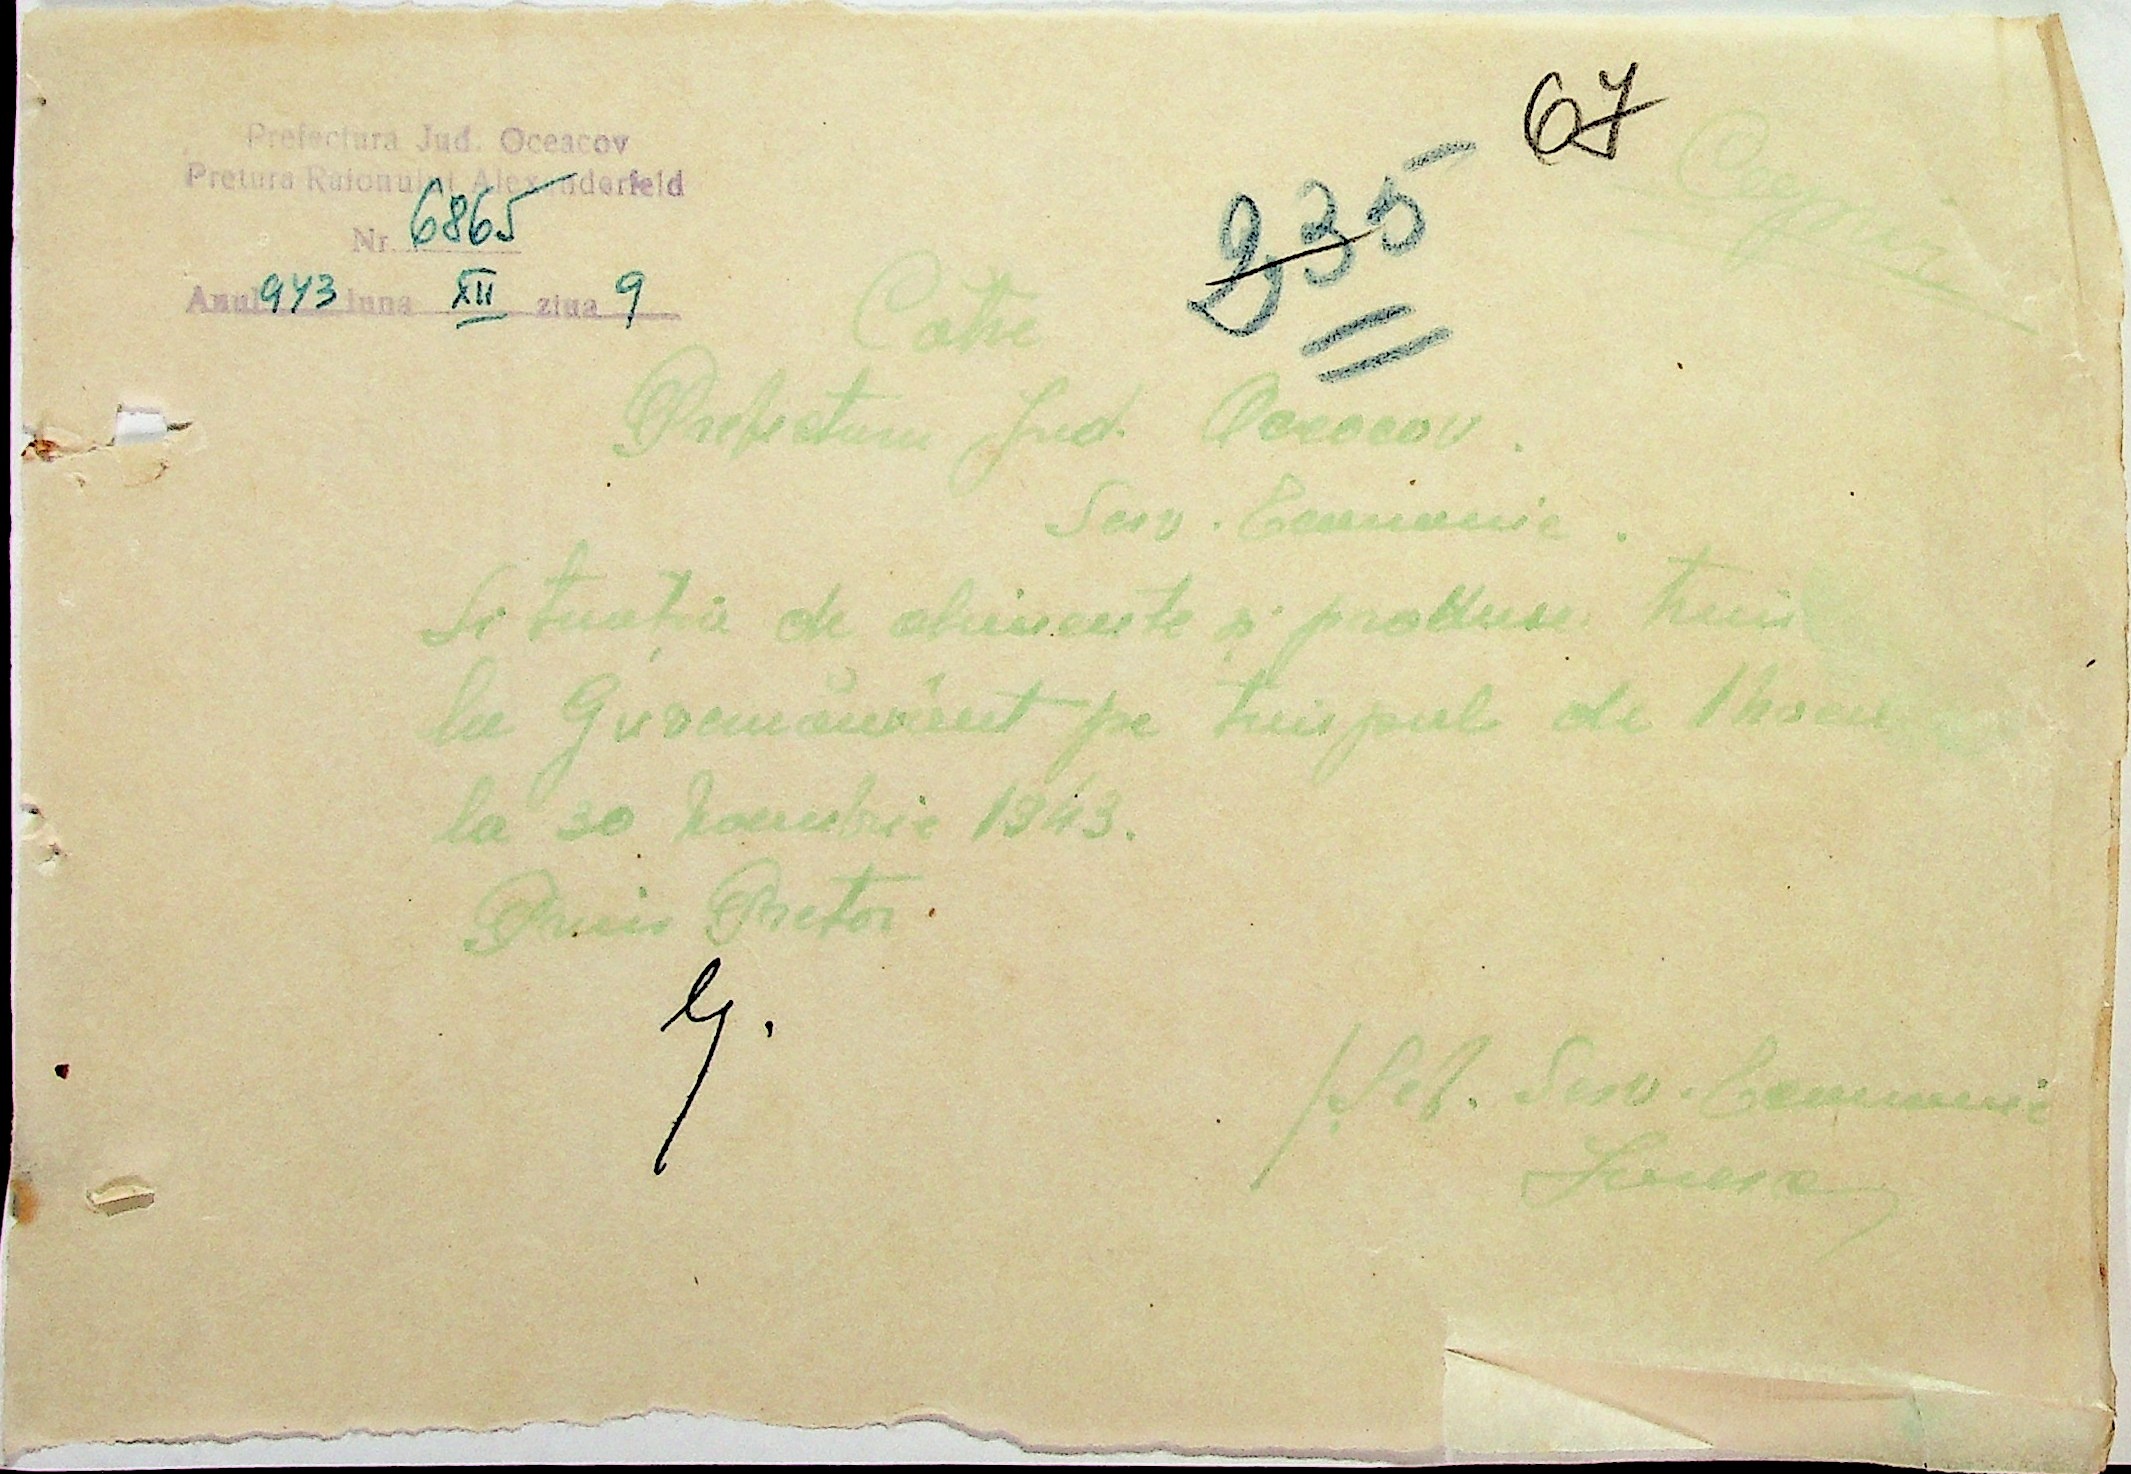 67
235
Prefectura Jud. Oceacov
Pretura Raionului Alexanderfeld
Nr. 6865
Anul 943 luna XII ziua 9
Către
Prefectura Jud. Oceacov.
Serv. Economic.
Situația de alimente și produse trim
la Guvernământ pe timpul de 1 Noem
la 30 Noembrie 1943.
Prim Pretor
Șef. Serv. Economic